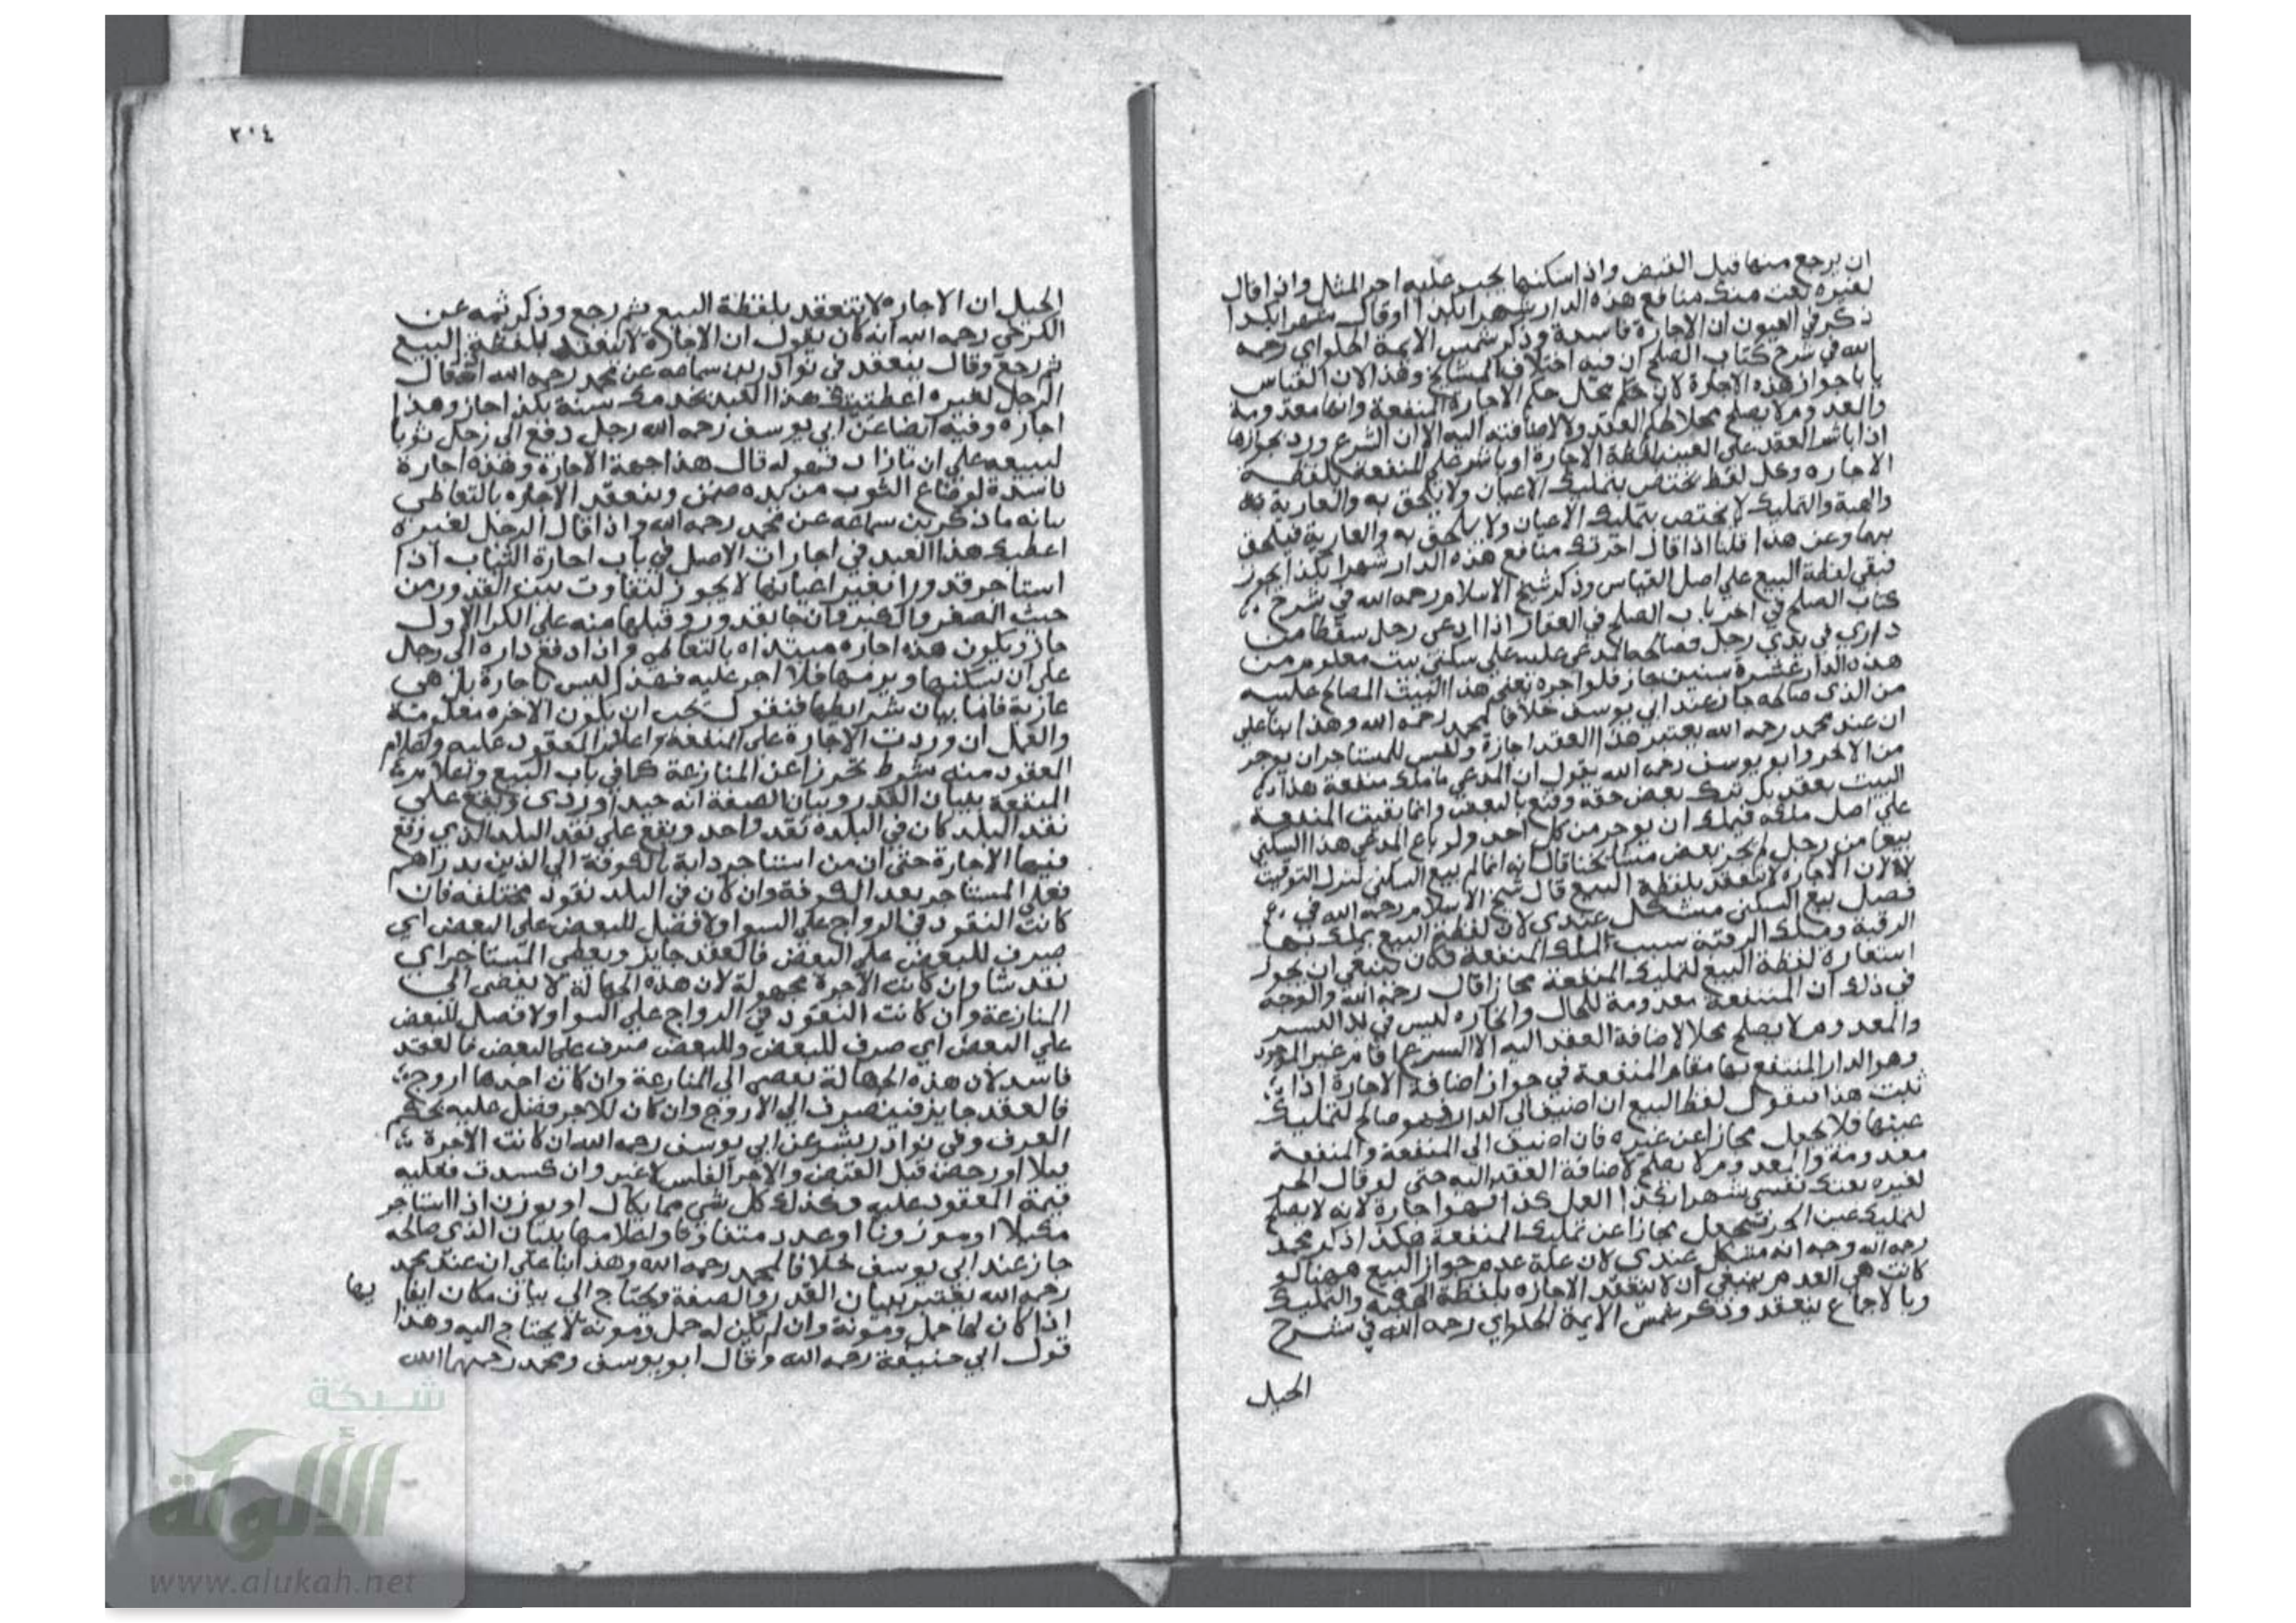 ان يرجع منها قبل القبض واذا سكنها يجب عليه اجر المثل واذا قال
لغيره بعت منك منافع هذه الدار شهرا بكذا اوقال شهرا بكذا
ذكر في العيون ان الاجارة فاسدة وذكر شمس الايمة الحلواي رحمه
الله في شرح كتاب الصلح ان فيه اختلاف المشايخ وهذا لان القياس
يابا جواز هذه الاجارة لان محل حكم الاجارة المنفعة وانها معدومة
والعدوم لا يصلح محلا للعقد ولا لاضافته اليه الا ان الشرع ورد بجوازها
اذا باشر العقد على العين بلفظة الاجارة او باشر على المنفعة بلفظة
الاجاره وكل لفظ يختص بتمليك الاعيان ولا يلحق به والعارية
والهبة والتمليك لا يختص بتمليك الاعيان ولا يلحق به والعارية فيلحق
بهما وعن هذا قلنا اذا قال اجرتك منافع هذه الدار شهرا بكذا يجوز
فبقي لفظة البيع على اصل القياس وذكر شيخ الاسلام رحمه الله في شرح
كتاب الصلح في اخر باب الصلح في العقار اذا ادعى رجل سقطا من
داري في يدي رجل وصالحه المدعى عليه على سكنى بيت معلوم من
هذه الدار عشرة سنين جاز فلو اجره يعني هذا البيت المصالح عليه
من الذي صالحه جاز عند ابي يوسف خلافا لمحمد رحمه الله وهذا بنا على
ان عند محمد رحمه الله يعتبر هذا العقد اجازة وليس للمستاجر ان يوجر
من الاجر وابو يوسف رحمه الله يقول ان المدعي ما ملك منفعة هذا
البيت بعقد بل ترك بعض حقه وقنع بالبعض وانما بقيت المنفعة
على اصل ملكه فيملك ان يوجر من كل احد ولو باع المدعي هذا السكنى
بيعا من رجل لم يجز بعض مشايخنا قال انه انما لم يبع السكنى لترك التوقيت
لا لان الاجاره لا تنعقد بلفظة البيع قال شيخ الاسلام رحمه الله في
فصل بيع السكنى مشكل عندي لان لفظة البيع يملك بها
الرقبة وملك الرقبة سبب الملك المنفعة فكان ينبغي ان يجوز
استعارة لفظة البيع لتمليك المنفعة مجازا قال رحمه الله والوجه
في ذلك ان المنفعة معدومة للحال وايجاره ليس في يد البسر
والمعدوم لا يصلح محلا لاضافة العقد اليه الا الشرع اقام عين الموجود
وهو الدار المنتفع بها مقام المنفعة في جواز اضافة الاجارة اذا
ثبت هذا فنقول لفظ البيع ان اضيف الى الدار فهو صالح لتمليك
عينها فلا يجعل مجازا عن غيره فان اضيف الى المنفعة والمنفعة
معدومة والمعدوم لا يصلح لاضافة العقد اليه حتى لو قال الحر
لغيره بعتك نفسي شهرا بكذا لعمل كذا فهو اجارة لانه لا يصلح
لتمليك عين الحر فيجعل مجازا عن تمليك المنفعة هكذا ذكر محمد
رحمه الله وجه انه مشكل عندي لان علة عدم جواز البيع ههنا لو
كانت هي العدم ينبغي ان لا تنعقد الاجاره بلفظة الهبة والتمليك
وبالاجماع ينعقد وذكر شمس الايمة الحلواي رحمه الله في شرح
الحيل
٢٠٤
الحيل ان الاجاره لا تنعقد بلفظة البيع ثم رجع وذكر ثمه عن
الكرخي رحمه الله انه كان يقول ان الاجاره لا تنعقد بلفظة البيع
ثم رجع وقال ينعقد في نوادر بن سماعه عن محمد رحمه الله اذا قال
الرجل لغيره اعطيتك هذا العبد يخدمك سنة بكذا جاز وهذا
اجاره وفيه ايضا عن ابي يوسف رحمه الله رجل دفع الى رجل ثوبا
ليبيعه على ان مازاد فهو له قال هذا جهة الاجارة وهذه اجارة
فاسدة لو ضاع الثوب من يده ضمن وينعقد الاجاره بالتعاطي
بيانه ما ذكر بن سماعه عن محمد رحمه الله واذا قال الرجل لغيره
اعطيك هذا العبد في اجارات الاصل في باب اجارة الثياب اذا
استاجر قدورا بغير اعيانها لا يجوز لتفاوت بين القدور من
حيث الصغر والكبر فان جا بقدور وقبلها منه على الكرا الاول
جاز ويكون هذه اجاره مبتداه بالتعاطي واذا دفع داره الى رجل
على ان يسكنها ويرمها فلا اجر عليه فهذا ليس باجارة بل هي
عارية فاما بيان شرايطها فنقول يجب ان يكون الاجره معلومة
والعمل ان وردت الاجارة على المنفعة واعلام المعقود عليه واعلام
المعقود منه شرط تحرزا عن المنازعة كما في باب البيع واعلام
المنفعة ببيان القدر وبيان الصفة انه جيد او ردي ويقع على
نقد البلد كان في البلدة نقد واحد ويقع على نقد البلد الذي وقع
فيها الاجارة حتى ان من استاجر دابة بالكوفة الى الذين بدراهم
فعلى المستاجر بعد الكوفة وان كان في البلد نقود مختلفه فان
كانت النقود في الرواج على السوا ولا فضل للبعض على البعض اي
صرف للبعض على البعض فالعقد جايز ويعطي المستاجر اي
نقد شا وان كانت الاجرة مجهولة لان هذه الجهالة لا يفضى الى
المنازعة وان كانت النقود في الرواج على السوا ولا فضل للبعض
على البعض اي صرف للبعض وللبعض صرف على البعض فالعقد
فاسد لان هذه الجهالة يفضي الى المنازعة وان كان احدها اروج
فالعقد جايز فينصرف الى الاروج وان كان للاجر فضل عليه بحكم
العرف وفي نوادر بشر عن ابي يوسف رحمه الله ان كانت الاجرة
فيلا او رخص قبل القبض والاجر الفلس لا غير وان كسدت فعليه
قيمة المعقود عليه وكذلك كل شي مما يكال او يوزن اذا استاجر
مكيلا او موزونا او عدد متفاوتا واعلامها ببيان الذي صالحه
جاز عند ابي يوسف خلافا لمحمد رحمه الله وهذا بنا على ان عند محمد
رحمه الله يعتبر ببيان القدر والصفة ويحتاج الى بيان مكان ايفا يها
اذا كان لها حمل ومونة وان لم يكن له حمل ومونة لا يحتاج اليه وهذا
قول ابي حنيفة رحمه الله وقال ابو يوسف ومحمد رحمهما الله
شبكة
الألوكة
www.alukah.net